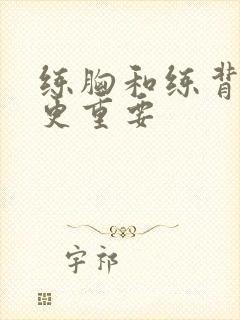 练胸和练背
更重要
字祁